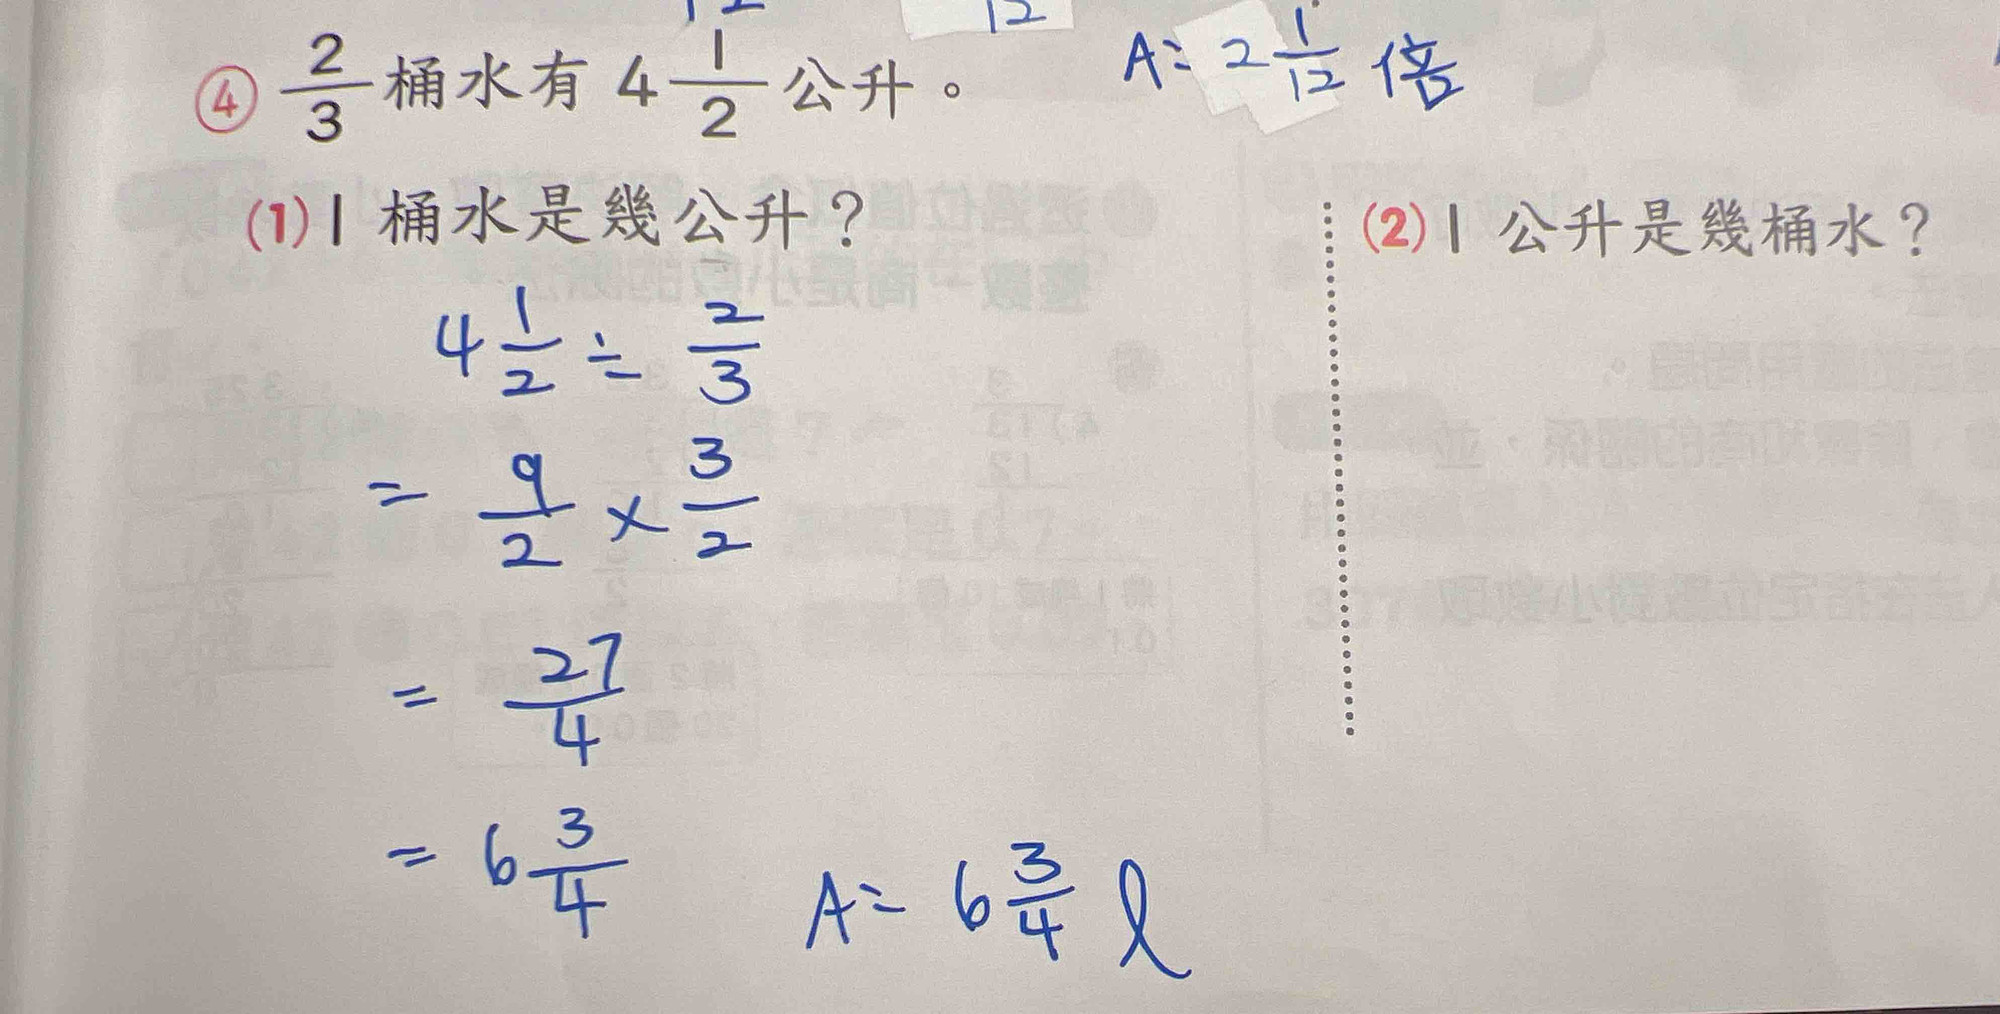 A= 2 1/12 倍
④ 2/3 桶水有 4 1/2 公升。
(1) 1 桶水是幾公升？
4 1/2 ÷ 2/3
= 9/2 × 3/2
= 27/4
= 6 3/4
A= 6 3/4 ℓ
(2) 1 公升是幾桶水？